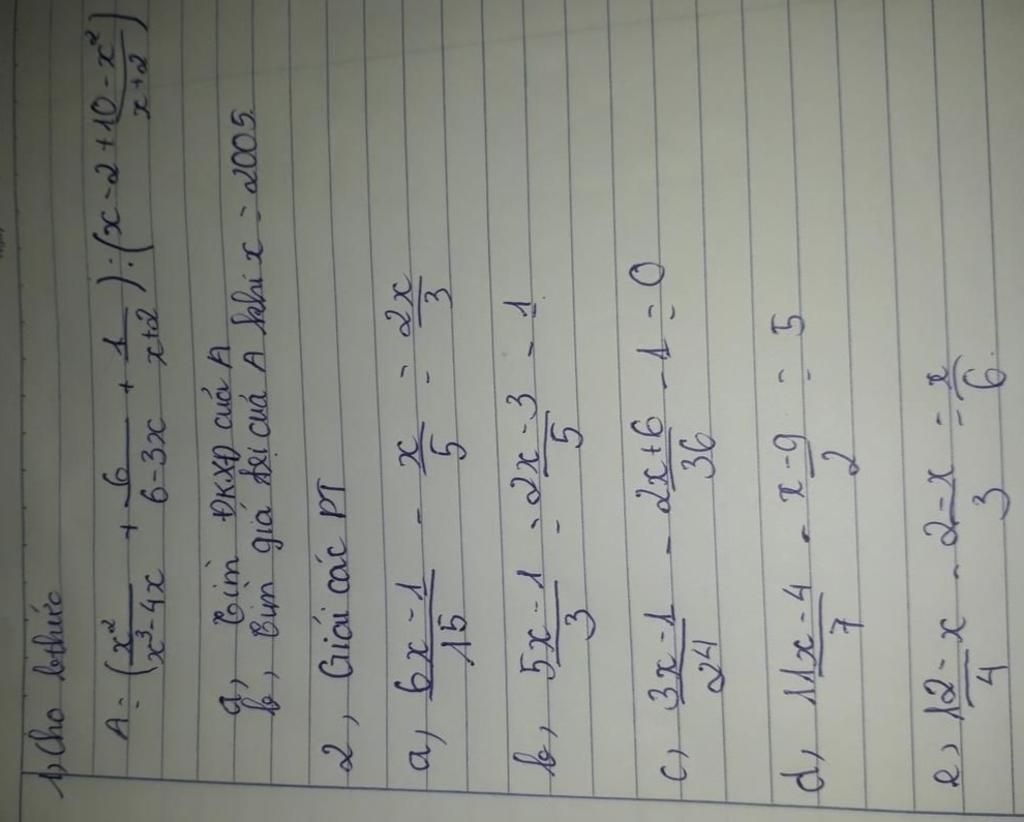 1, Cho bthức
A = (x²/(x³-4x) + 6/(6-3x) + 1/(x+2)) : (x-2 + (10-x²)/(x+2))
a, Tìm ĐKXĐ của A
b, Tìm giá trị của A khi x = 2005
2, Giải các PT
a, (6x-1)/15 - x/5 = 2x/3
b, (5x-1)/3 = (2x-3)/5 - 1
c, (3x-1)/24 - (2x+6)/36 - 1 = 0
d, (11x-4)/7 - (x-9)/2 = 5
e, (12-x)/4 - (2-x)/3 = x/6